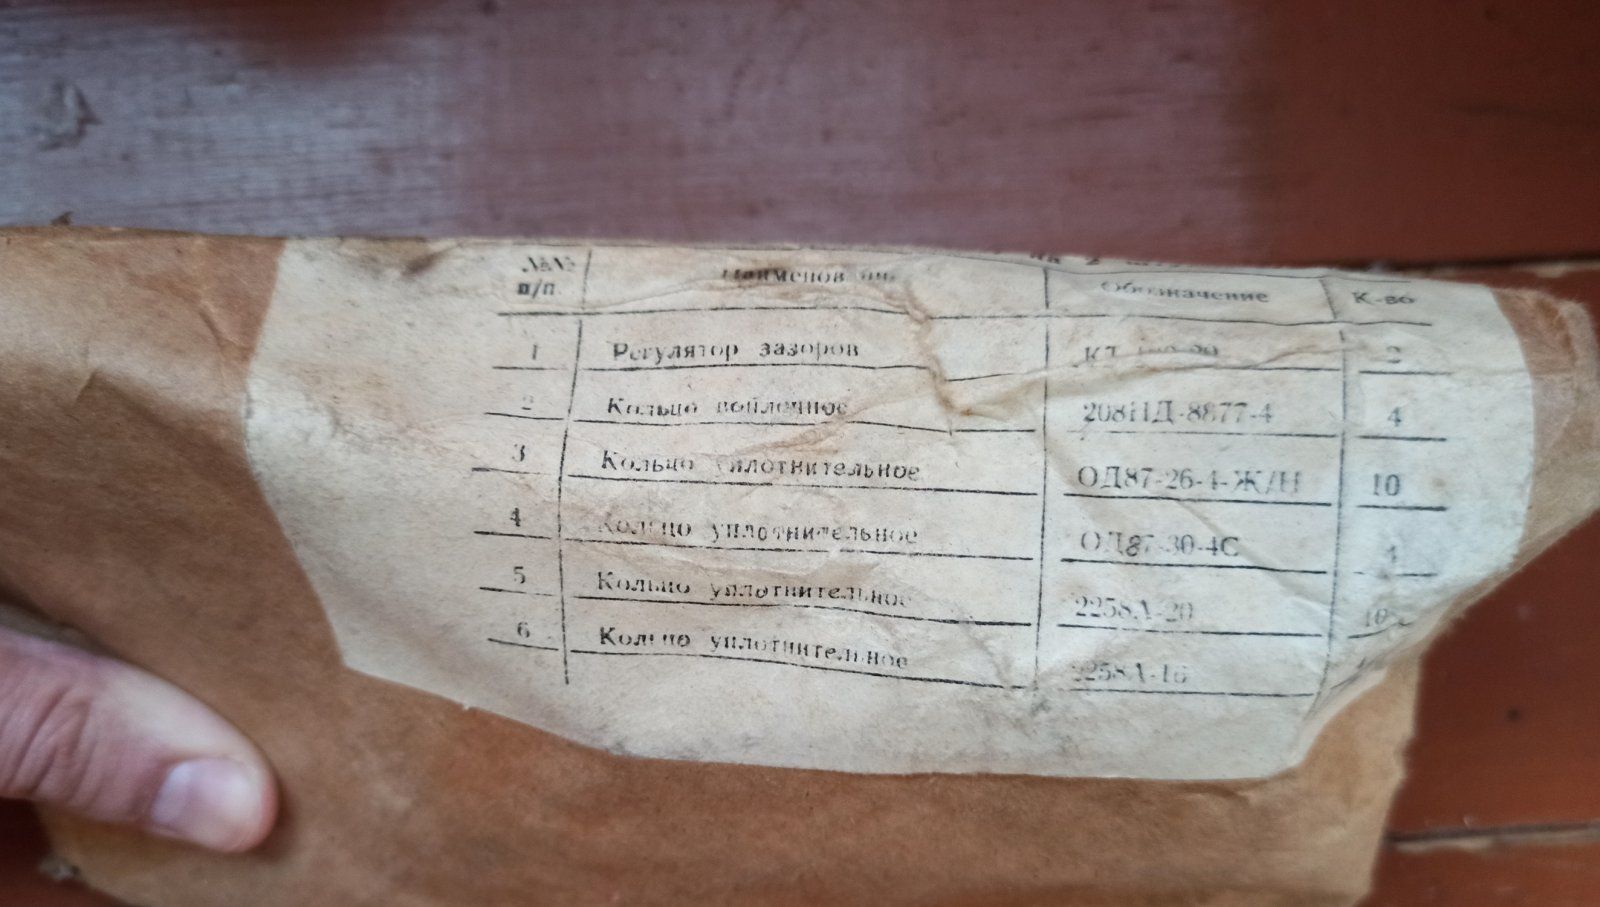 №№ Наименов Обозначение К-во
п/п
1 Регулятор зазоров 2
2 Кольцо войлочное 208НД-8877-4 4
3 Кольцо уплотнительное ОД87-26-4-Ж/Н 10
4 Кольцо уплотнительное ОД87-30-4С 4
5 Кольцо уплотнительное 2258А-20 10
6 Кольцо уплотнительное 2258А-16